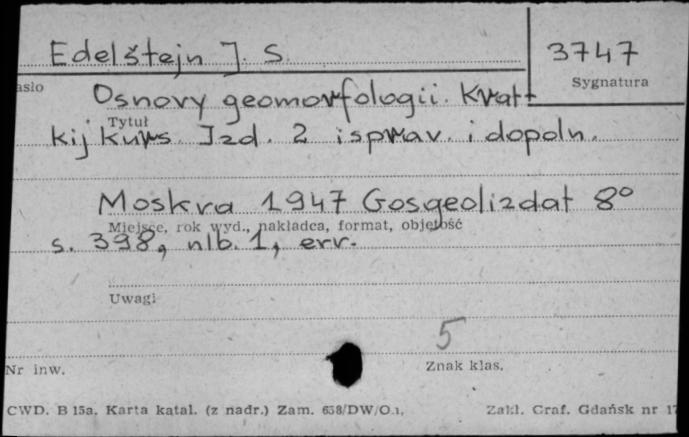 Edelštejn J. S. 3747
asło Sygnatura
Osnovy geomorfologii. Kratt
Tytuł
kij kurs. Izd. 2 isprav. i dopoln.
Moskva 1947 Gosgeolizdat 8°
Miejsce, rok wyd., nakładca, format, objętość
s. 398, nlb. 1, err.
Uwagi
5
Nr inw. Znak klas.
CWD. B 15a. Karta katal. (z nadr.) Zam. 658/DW/O.1, Zakł. Graf. Gdańsk nr 17